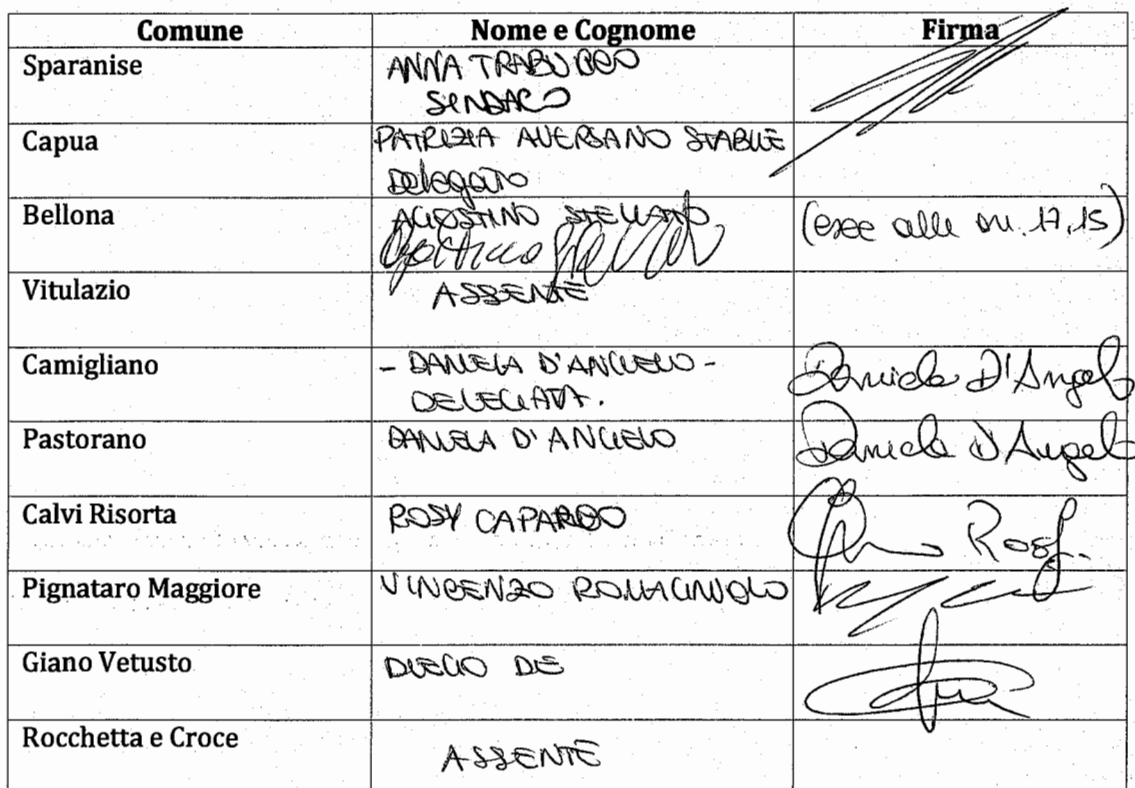 Comune Nome e Cognome Firma
Sparanise ANNA TRABUCCO
SINDACO
Capua PATRIZIA AVERSANO STABILE
Delegato
Bellona AGOSTINO STELLATO (esce alle ore 17,15)
Vitulazio ASSENTE
Camigliano - DANIELA D'ANGELO - Daniela D'Angelo
DELEGATA.
Pastorano DANIELA D'ANGELO Daniela D'Angelo
Calvi Risorta ROSY CAPARCO Rosy
Pignataro Maggiore VINCENZO ROMAGNUOLO
Giano Vetusto DIEGO DE
Rocchetta e Croce ASSENTE